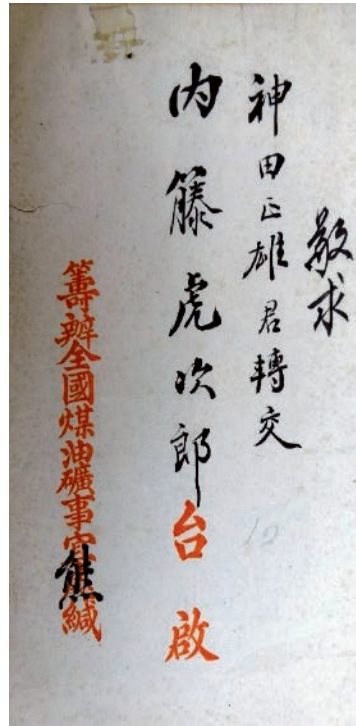 敬求
神田正雄君轉交
内藤虎次郎台啟
籌辦全國煤油礦事宜熊緘